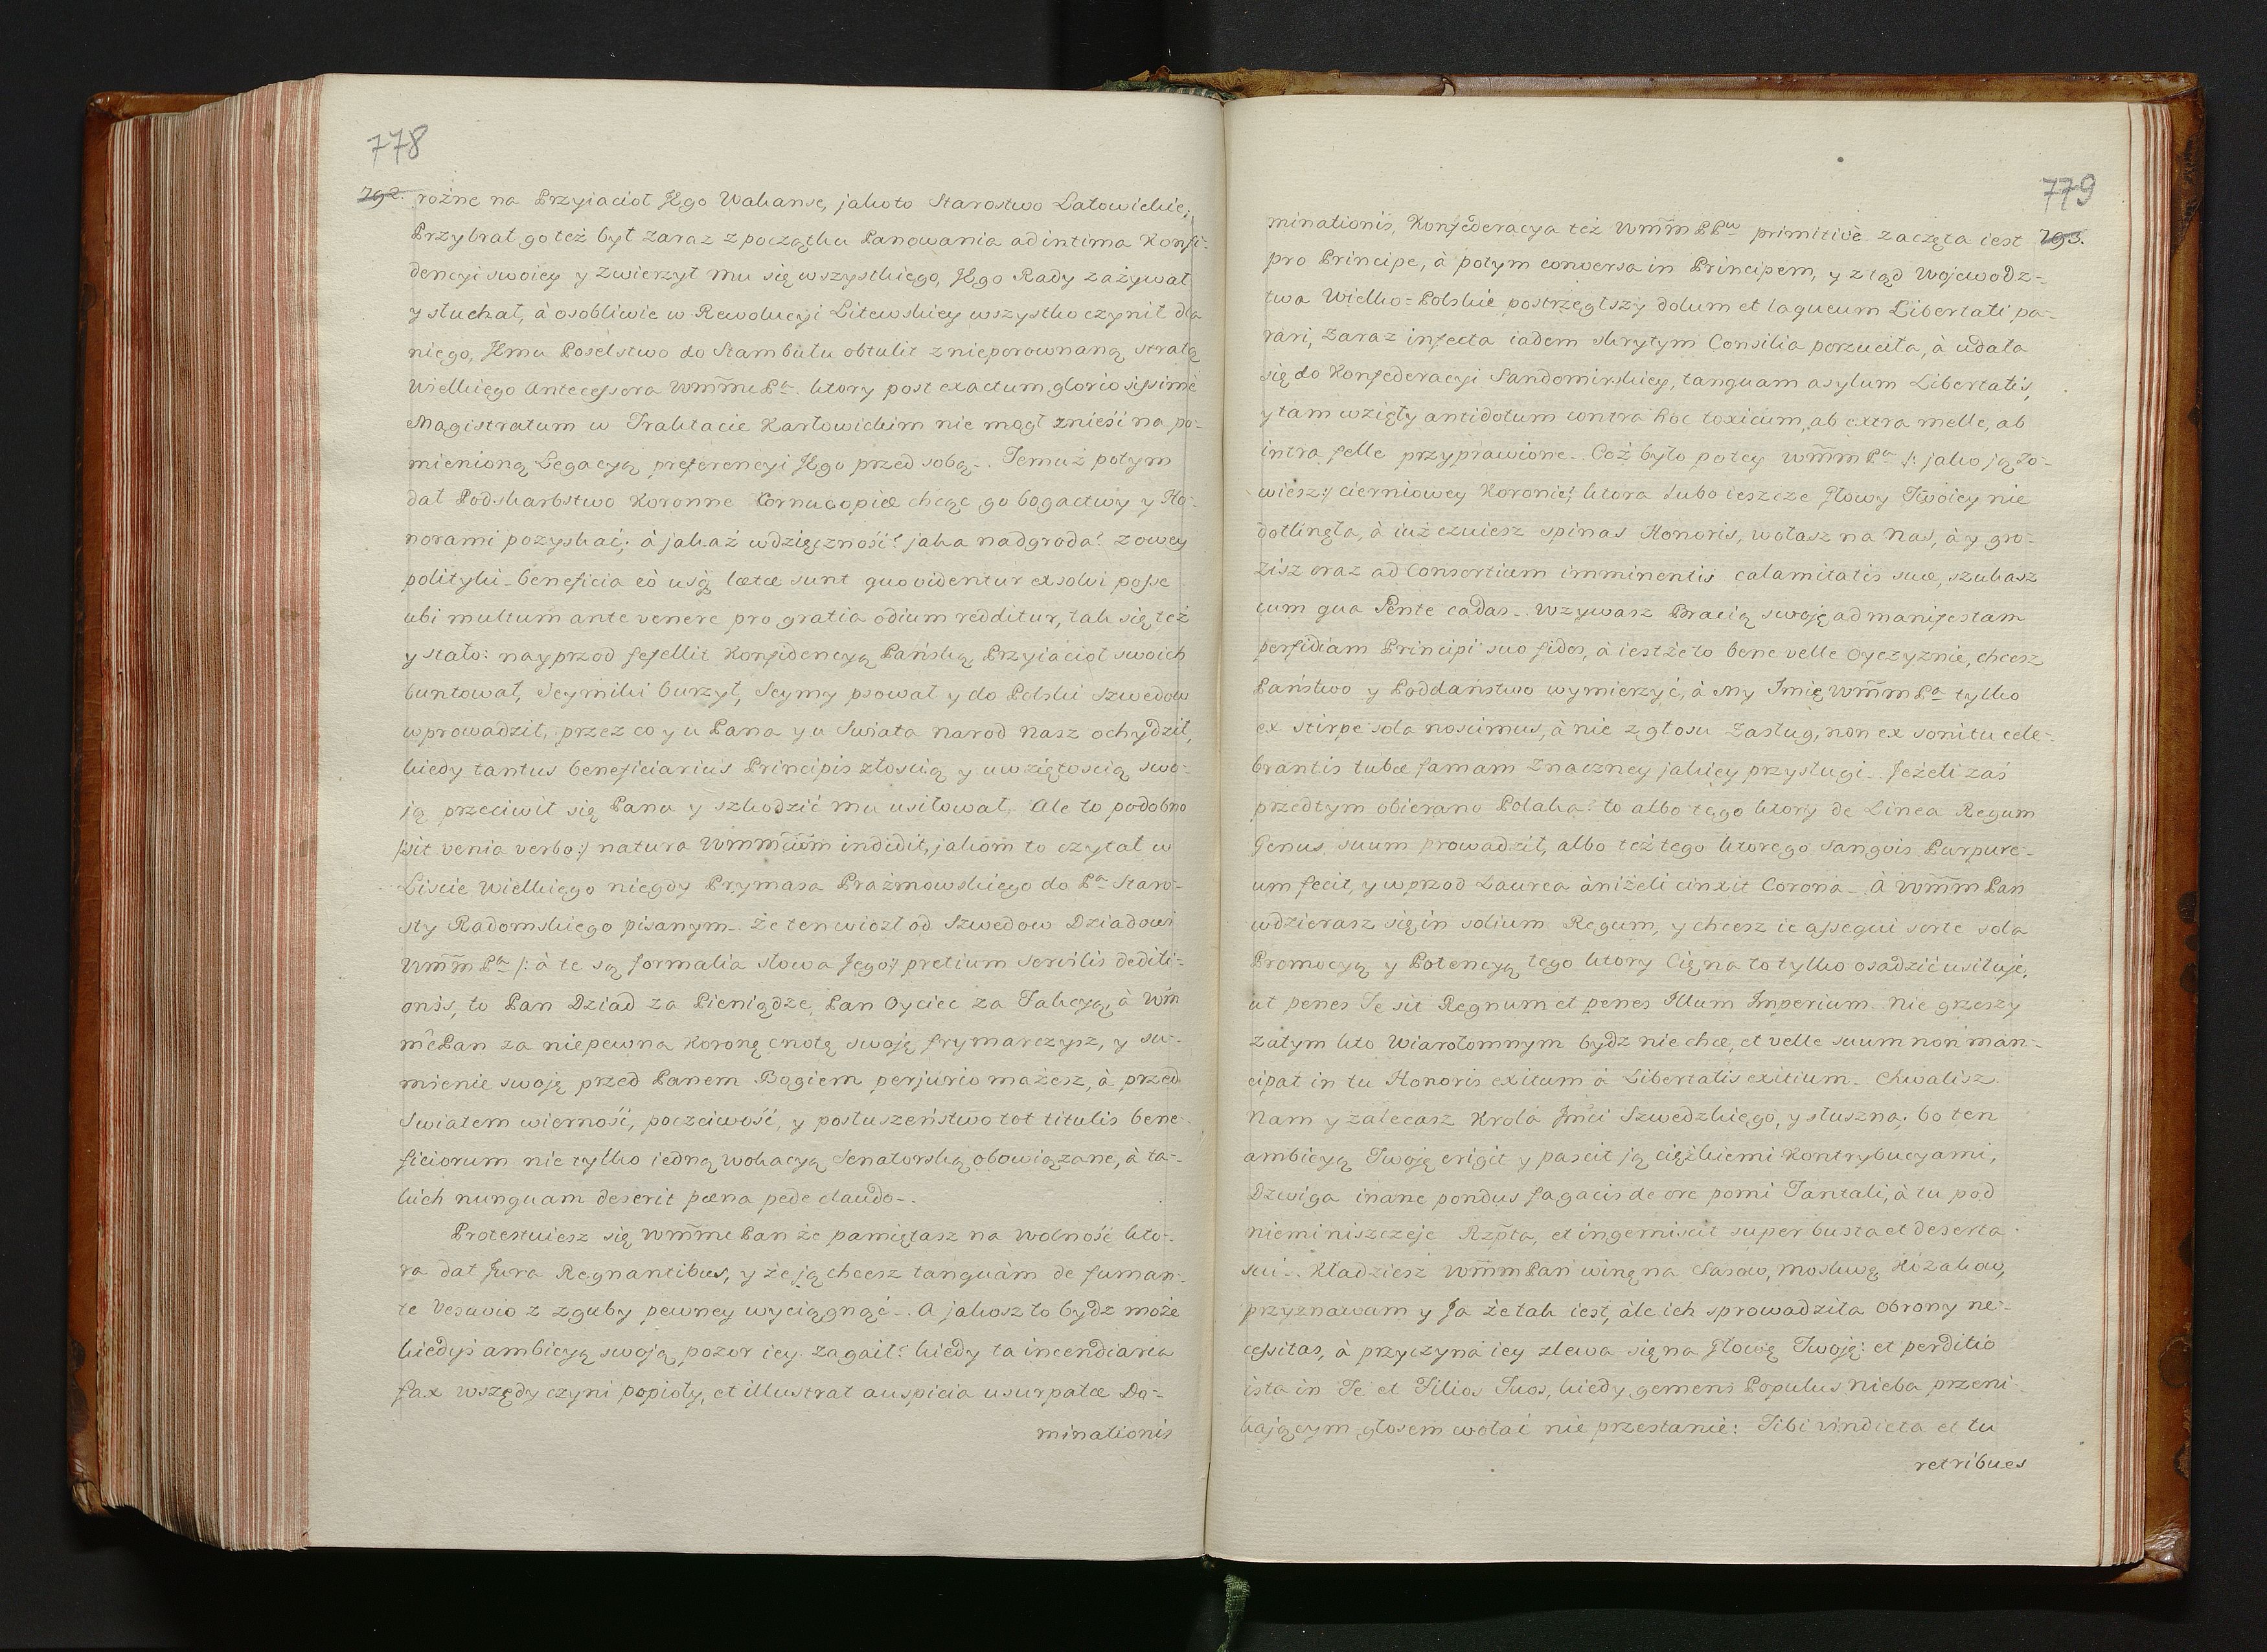 778
792. rożne na Przyiacioł Jego Wakanse, jakoto Starostwo Latowickie;
Przybrał go też był zaraz z początku Panowania ad intima Konfi-
dencyi swoiey y zwierzył mu się wszystkiego, Jego Rady zażywał
y słuchał, à osobliwie w Rewolucyi Litewskiey wszystko czynił dla
niego, Jemu Poselstwo do Stambułu obtulit z nieporownaną stratą
Wielkiego Antecessora Wm̃m̃e Pa. ktory post exactum gloriosissimè
Magistratum w Traktacie Karłowickim nie mogł znieść na po-
mienioną Legacyą preferencyi Jego przed sobą. Temuż potym
dał Podskarbstwo Koronne Cornucopiæ chcąc go bogactwy y Ho-
norami pozyskać; à jakaż wdzięczność? jaka nadgroda? z owey
polityki beneficia eò usq lætæ sunt quo videntur exsolvi posse
ubi multum ante venere pro gratia odium redditur, tak się też
y stało: nayprzod fefellit Konfidencyą Pańską Przyiacioł swoich
buntował, Seymiki burzył, Seymy psował y do Polski Szwedow
wprowadził, przez co y u Pana y u Swiata narod nasz ochydził,
kiedy tantus beneficiarius Principis złością y uwziętością swo-
ją przeciwił się Panu y szkodzić mu usiłował. Ale to podobno
/:sit venia verbo:/ natura indidit, jakom to czytał w
Liscie Wielkiego niegdy Prymasa Prażmowskiego do Pa Staro-
sty Radomskiego pisanym. Że ten wiozł od Szwedow Dziadowi
Wm̃m̃ Pa /: à te są formalia słowa Jego:/ pretium servilis dediti-
onis, to Pan Dziad za Pieniądze, Pan Oyciec za Fakcyą, à Wm̃
m̃e Pan za niepewna Koronę cnotę swoję frymarczysz, y su-
mienie swoję przed Panem Bogiem perjurio mażesz, à przed
Swiatem wierność, poczciwość, y posłuszeństwo tot titulis bene-
ficiorum nie tylko iedną wokacyą Senatorską obowiązane, à ta-
kich nunquam deserit pæna pede claudo.
Protestuiesz się Wm̃m̃e Pan że pamiętasz na wolność kto-
ra dat Jura Regnantibus, y że ją chcesz tanquàm de fuman-
te Vesuvio z zguby pewney wyciągnąć. A jakosz to bydz może
kiedyś ambicyą swoją pozor iey zagaił? kiedy ta incendiaria
fax wszędy czyni popioły, et illustrat auspicia usurpatæ Do-
minationis
779
minationis, Konfederacya też Wm̃m̃ PPw primitivè zaczęta iest 793.
pro Principe, à potym conversa in Principem, y z tąd Wojewodz-
twa Wielko=Polskie postrzegłszy dolum et laqueum Libertati pa-
rari, zaraz infecta iadem skrytym Consilia porzuciła, à udała
się do Konfederacyi Sandomirskiey, tanquam asylum Libertatis,
y tam wzięły antidotum contra hoc toxicum, ab extra melle, ab
intra felle przyprawione. Coż było potey Wm̃m̃ Pa /: jako ją zo-
wiesz:/ cierniowey Koronie; ktora lubo ieszcze Głowy Twoiey nie
dotknęła, à iuż czuiesz spinas Honoris, wołasz na Nas, à y gro-
zisz oraz ad Consortium imminentis calamitatis suæ, szukasz
cum qua Pente cadas. Wzywasz Bracią swoję ad manifestam
perfidiam Principi suo fidos, à iestże to bene velle Oyczyznie, chcesz
Państwo y Poddaństwo wymierzyć, à My Imię Wm̃m̃ Pa tylko
ex stirpe sola noscimus, à nie z głosu zasług, non ex sonitu cele-
brantis tubæ famam znaczney jakiey przysługi. Jeżeli zaś
przedtym obierano Polaka? to albo tego ktory de Linea Regum
Genus suum prowadził, albo też tego ktorego sangvis Purpure-
um fecit, y wprzod Laurea àniżeli cinxit Corona. à Wm̃m̃ Pan
wdzierasz się in solium Regum, y chcesz ie assequi sorte sola
Promocyą y Potencyą tego ktory Cię na to tylko osadzić usiłuje,
ut penes Te sit Regnum et penes Illum Imperium. Nie grzeszy
zatym kto Wiarołomnym bydz nie chce, et velle suum non man-
cipat in tu Honoris exitum à Libertatis exitium. Chwalisz
Nam y zalecasz Krola Jm̃ci Szwedzkiego, y słuszna; bo ten
ambicyą Twoję erigit y pascit ją ciężkiemi Kontrybucyami,
Dzwiga inane pondus fagacis de ore pomi Tantali, à tu pod
nieminiszczeje Rzp̃ta, et ingemiscit super busta et deserta
sui. Kładziesz Wm̃m̃ Pan winę na Sasow, Moskwę, Kozakow,
przyznawam y Ja że tak iest, àle ich sprowadziła obrony ne-
cessitas, à przyczyna iey zlewa się na Głowę Twoję: et perditio
ista in Te et Filios Tuos, kiedy gemens Populus nieba przeni-
kającym głosem wołać nie przestanie: Tibi vindicta et tu
retribues